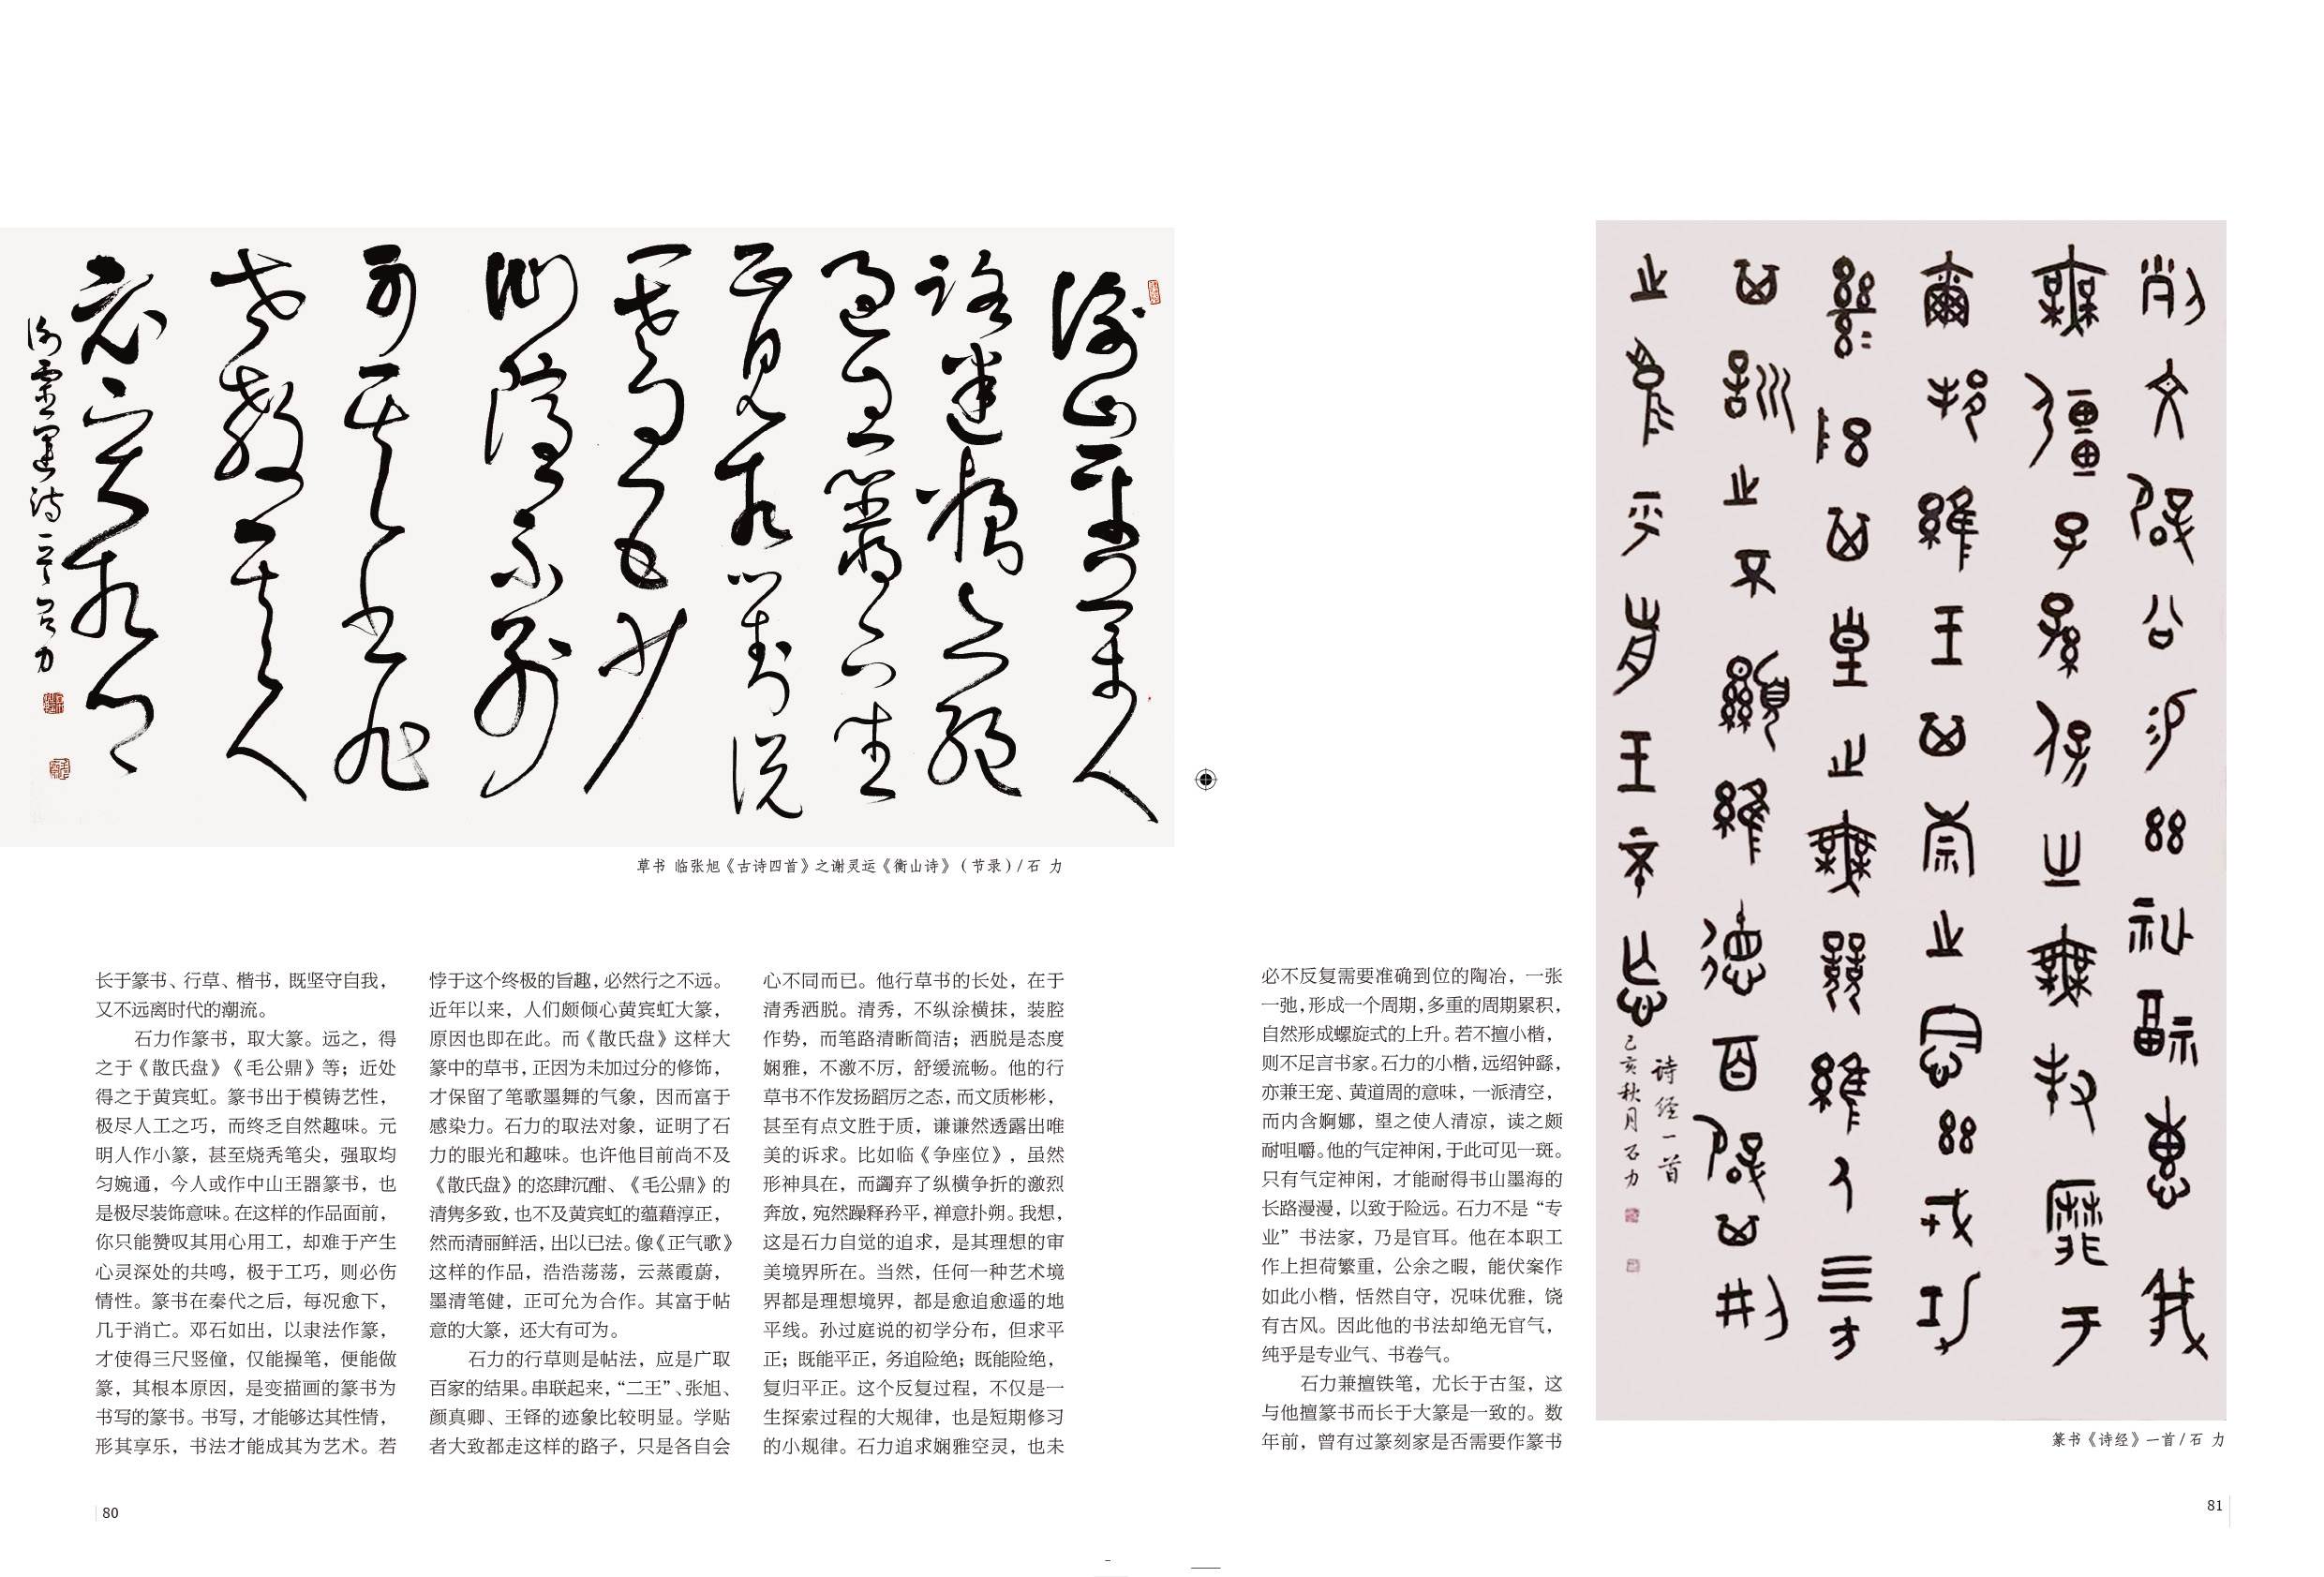 衡山采藥人
路迷粮亦絕
過息巖下坐
正見相對說
一老四五少
仙隱不別
可其書非
世教其人
必賢哲
謝靈運詩一首 石力
草书 临张旭《古诗四首》之谢灵运《衡山诗》（节录）/石 力
长于篆书、行草、楷书，既坚守自我，
又不远离时代的潮流。
石力作篆书，取大篆。远之，得
之于《散氏盘》《毛公鼎》等；近处
得之于黄宾虹。篆书出于模铸艺性，
极尽人工之巧，而终乏自然趣味。元
明人作小篆，甚至烧秃笔尖，强取均
匀婉通，今人或作中山王器篆书，也
是极尽装饰意味。在这样的作品面前，
你只能赞叹其用心用工，却难于产生
心灵深处的共鸣，极于工巧，则必伤
情性。篆书在秦代之后，每况愈下，
几于消亡。邓石如出，以隶法作篆，
才使得三尺竖僮，仅能操笔，便能做
篆，其根本原因，是变描画的篆书为
书写的篆书。书写，才能够达其性情，
形其享乐，书法才能成其为艺术。若
悖于这个终极的旨趣，必然行之不远。
近年以来，人们颇倾心黄宾虹大篆，
原因也即在此。而《散氏盘》这样大
篆中的草书，正因为未加过分的修饰，
才保留了笔歌墨舞的气象，因而富于
感染力。石力的取法对象，证明了石
力的眼光和趣味。也许他目前尚不及
《散氏盘》的恣肆沉酣、《毛公鼎》的
清隽多致，也不及黄宾虹的蕴藉淳正，
然而清丽鲜活，出以已法。像《正气歌》
这样的作品，浩浩荡荡，云蒸霞蔚，
墨清笔健，正可允为合作。其富于帖
意的大篆，还大有可为。
石力的行草则是帖法，应是广取
百家的结果。串联起来，“二王”、张旭、
颜真卿、王铎的迹象比较明显。学贴
者大致都走这样的路子，只是各自会
心不同而已。他行草书的长处，在于
清秀洒脱。清秀，不纵涂横抹，装腔
作势，而笔路清晰简洁；洒脱是态度
娴雅，不激不厉，舒缓流畅。他的行
草书不作发扬蹈厉之态，而文质彬彬，
甚至有点文胜于质，谦谦然透露出唯
美的诉求。比如临《争座位》，虽然
形神具在，而蠲弃了纵横争折的激烈
奔放，宛然躁释矜平，禅意扑朔。我想，
这是石力自觉的追求，是其理想的审
美境界所在。当然，任何一种艺术境
界都是理想境界，都是愈追愈遥的地
平线。孙过庭说的初学分布，但求平
正；既能平正，务追险绝；既能险绝，
复归平正。这个反复过程，不仅是一
生探索过程的大规律，也是短期修习
的小规律。石力追求娴雅空灵，也未
80
必不反复需要准确到位的陶冶，一张
一弛，形成一个周期，多重的周期累积，
自然形成螺旋式的上升。若不擅小楷，
则不足言书家。石力的小楷，远绍钟繇，
亦兼王宠、黄道周的意味，一派清空，
而内含婀娜，望之使人清凉，读之颇
耐咀嚼。他的气定神闲，于此可见一斑。
只有气定神闲，才能耐得书山墨海的
长路漫漫，以致于险远。石力不是“专
业”书法家，乃是官耳。他在本职工
作上担荷繁重，公余之暇，能伏案作
如此小楷，恬然自守，况味优雅，饶
有古风。因此他的书法却绝无官气，
纯乎是专业气、书卷气。
石力兼擅铁笔，尤长于古玺，这
与他擅篆书而长于大篆是一致的。数
年前，曾有过篆刻家是否需要作篆书
剌文辟公錫茲祉福惠我
無疆子孫保之無封靡于
爾邦維王其崇之念茲戎功
繼序其皇之無競維人四方
其訓之不顯維德百辟其刑
之於乎前王不忘
诗经一首
己亥秋月石力
篆书《诗经》一首/石 力
81